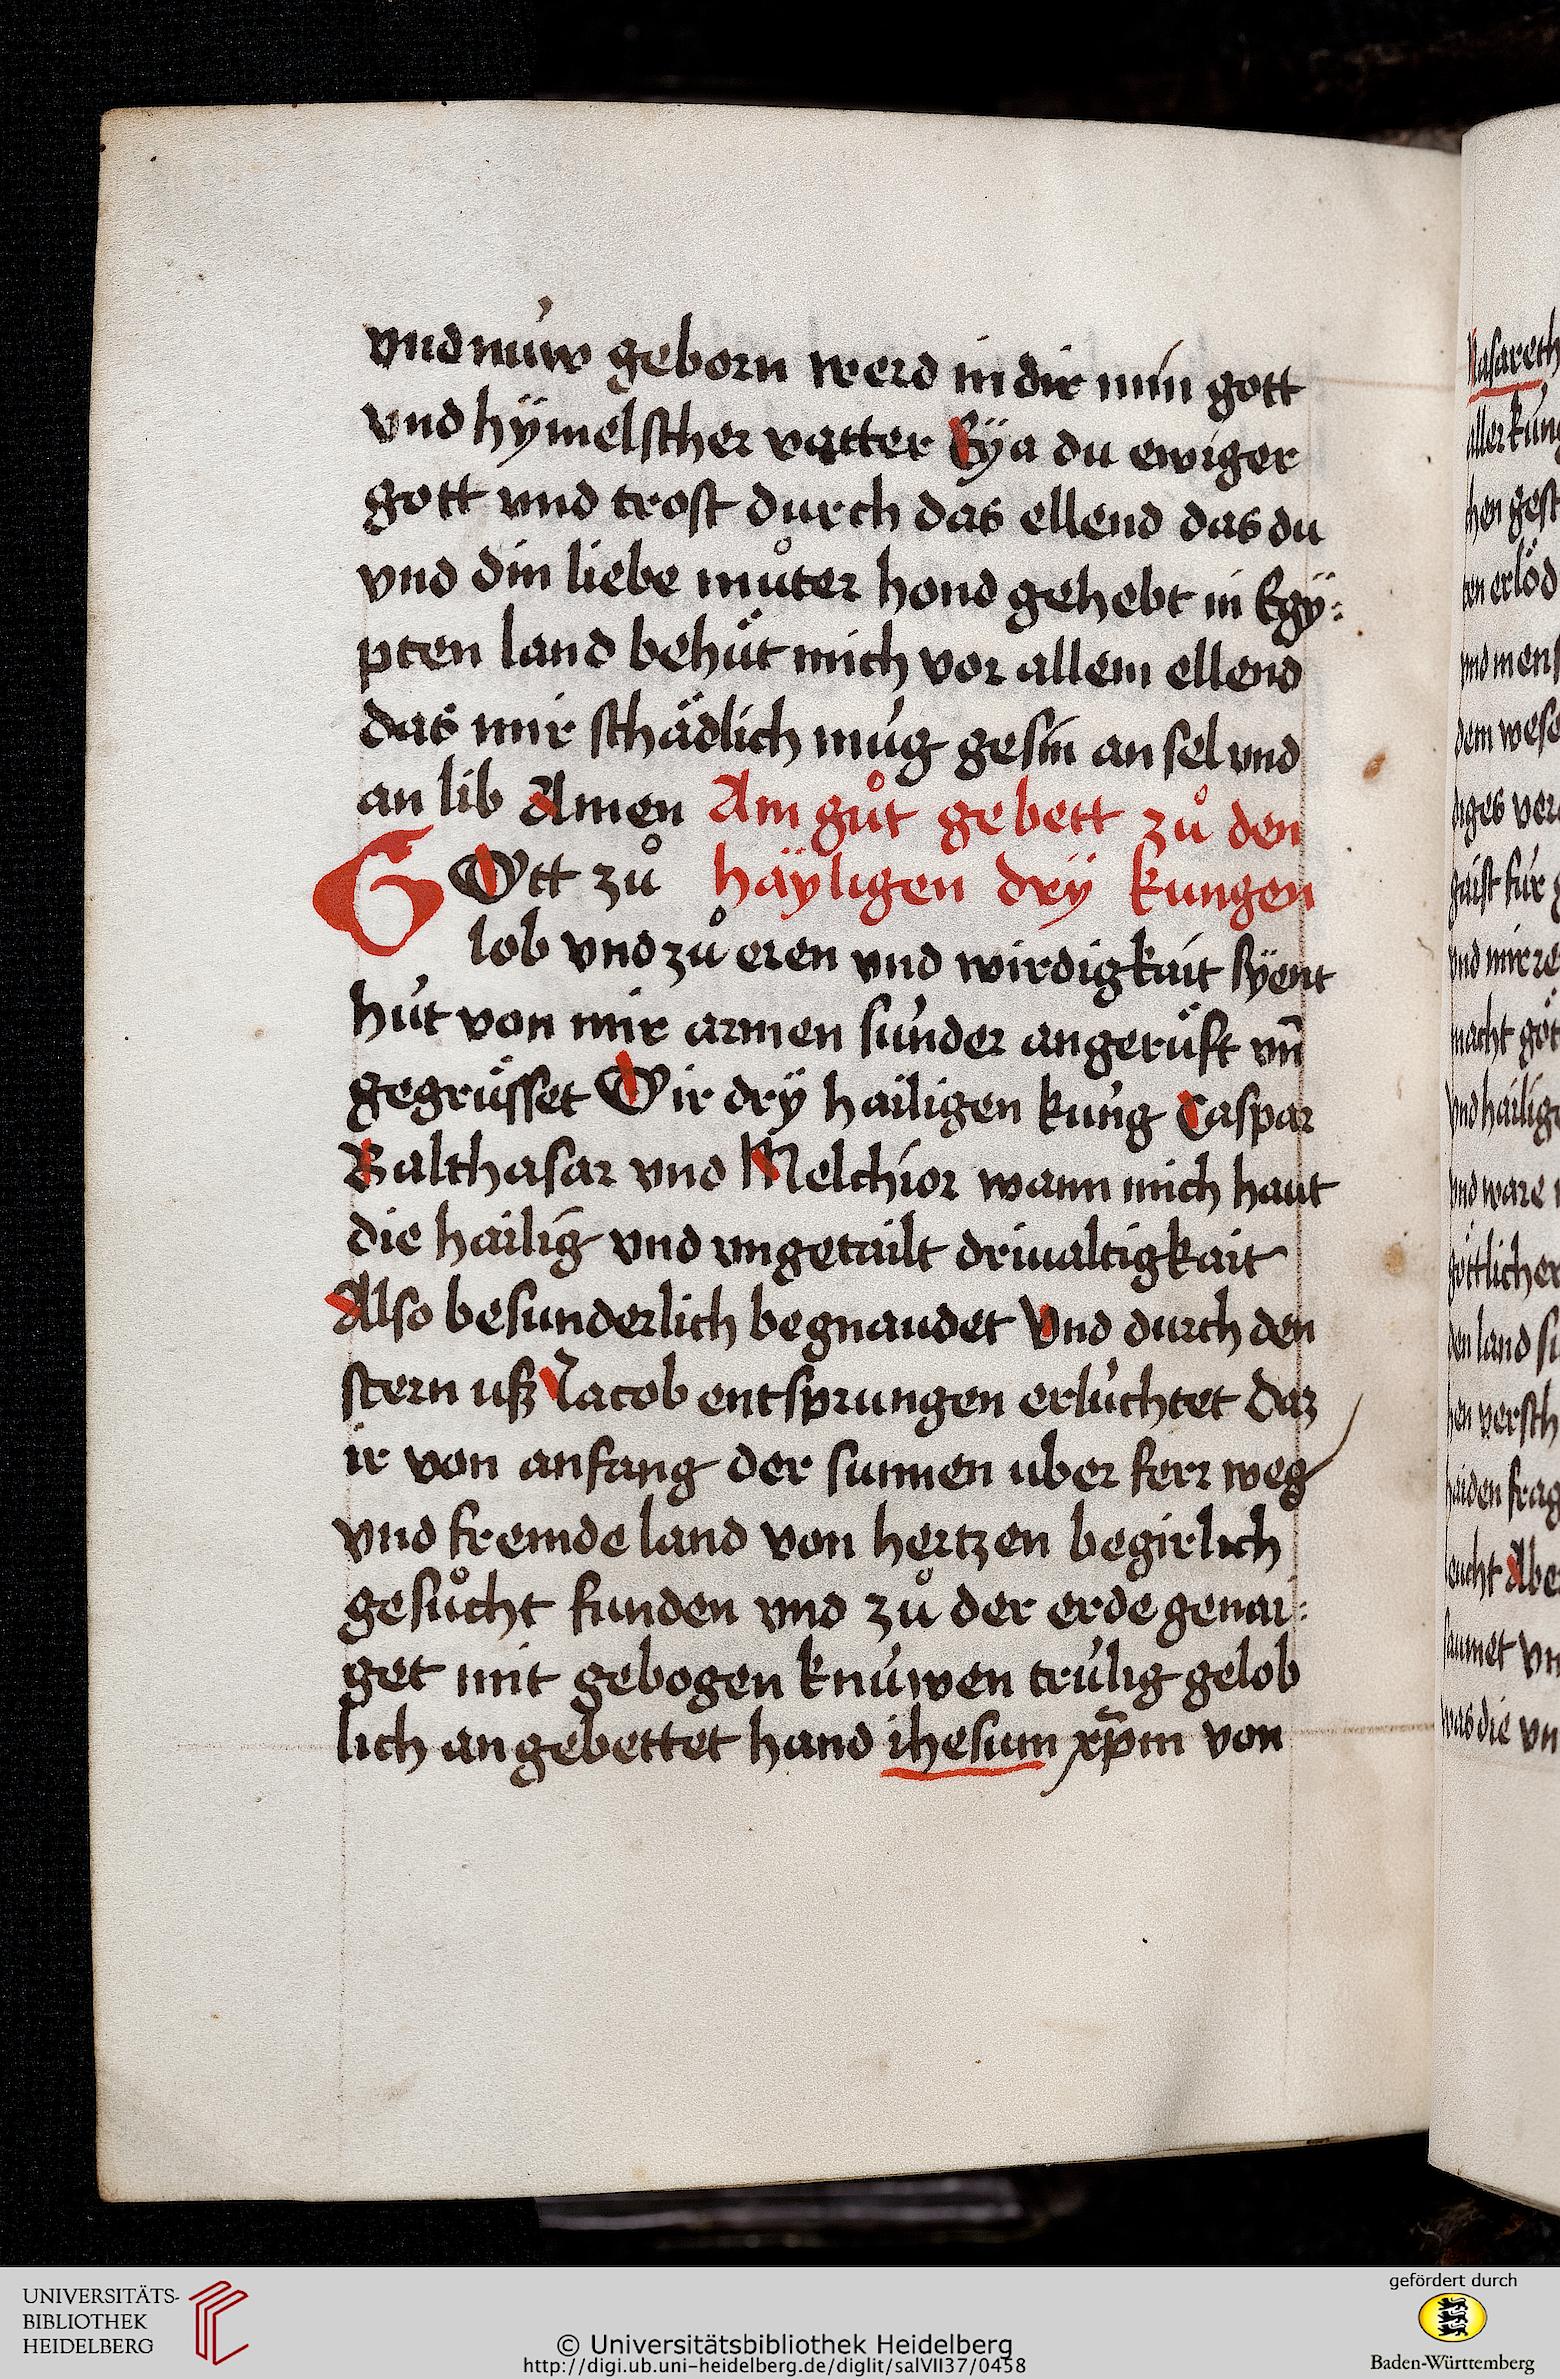 vnd núw geborn werd in dir min gott
vnd hÿmelscher vatter Eÿa du ewiger
gott vnd trost durch das ellend das du
vnd din liebe můter hond gehebt in Egÿ:
pten land behüt mich vor allem ellend
das mir schädlich múg gesin an sel vnd
an lib Amen Ain gůt gebett zů den
GOtt zů häyligen drÿ kungen
lob vnd zů eren vnd wirdigkait sÿent
hút von mir armen súnder angerüft vn̄
gegrüsset Wir drÿ hailigen kúng Caspar
Balthasar vnd Melchior wann mich haut
die hailig vnd vngetailt driualtigkait
Also besunderlich begnaudet Vnd durch den
stern uß Jacob entsprungen erlúchtet daz
ir von anfang der sunnen uber ferr weg
vnd fremde land von hertzen begirlich
gesůcht funden vnd zů der erde genai:
get mit gebogen knúwen trúlig gelob
lich angebettet hand ihesum xp̄m von
Nasareth
aller kúng
chen gest
ten erlöd
vnd mens
dem wese
diges ver
gaist fúr g
vnd mirre
macht göt
Vnd hailige
vnd ware
göttlicher
den land si
hen versch
haiden frag
leucht Abe
saumet vn
was die vn
UNIVERSITÄTS-
BIBLIOTHEK
HEIDELBERG
© Universitätsbibliothek Heidelberg
http://digi.ub.uni-heidelberg.de/diglit/salVII37/0458
gefördert durch
Baden-Württemberg